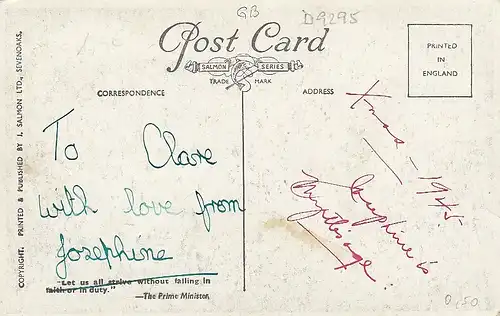 GB
D9295
Post Card
SALMON SERIES
TRADE MARK
PRINTED
IN
ENGLAND
CORRESPONDENCE
ADDRESS
COPYRIGHT. PRINTED & PUBLISHED BY J. SALMON LTD., SEVENOAKS.
To Clare
with love from
Josephine
"Let us all strive without failing in
faith or in duty."
—The Prime Minister.
Xmas - 1945.
Josephine is
0,50